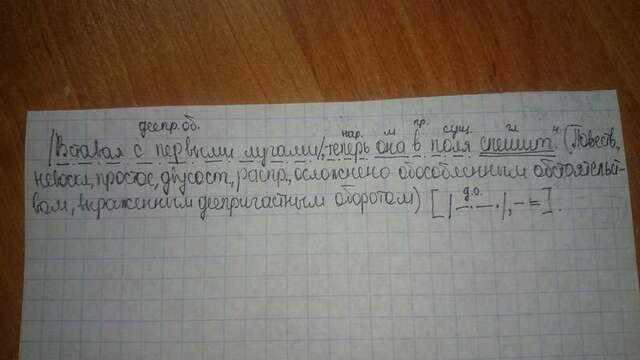 деепр.об. нар. м пр. сущ. гл
|Вставая с первыми лучами|, теперь она в поля спешит". (Повеств,
невоскл, простое, двусост, распр., осложнено обособленным обстоятельст-
вом, выраженным деепричастным оборотом) [|д.о.|, — =].